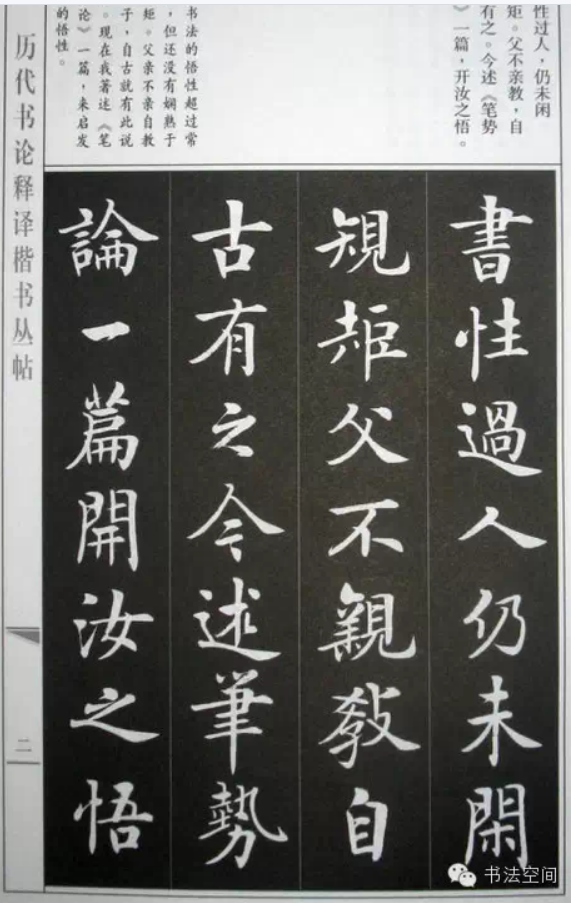 性过人，仍未闲
矩。父不亲教，自
有之。今述《笔势
》一篇，开汝之悟。
书法的悟性超过常
，但还没有娴熟于
矩。父亲不亲自教
子，自古就有此说
。现在我著述《笔
论》一篇，来启发
的悟性。
書性過人仍未閑
規矩父不親敎自
古有之今述筆勢
論一篇開汝之悟
历代书论释译楷书丛帖
二
书法空间